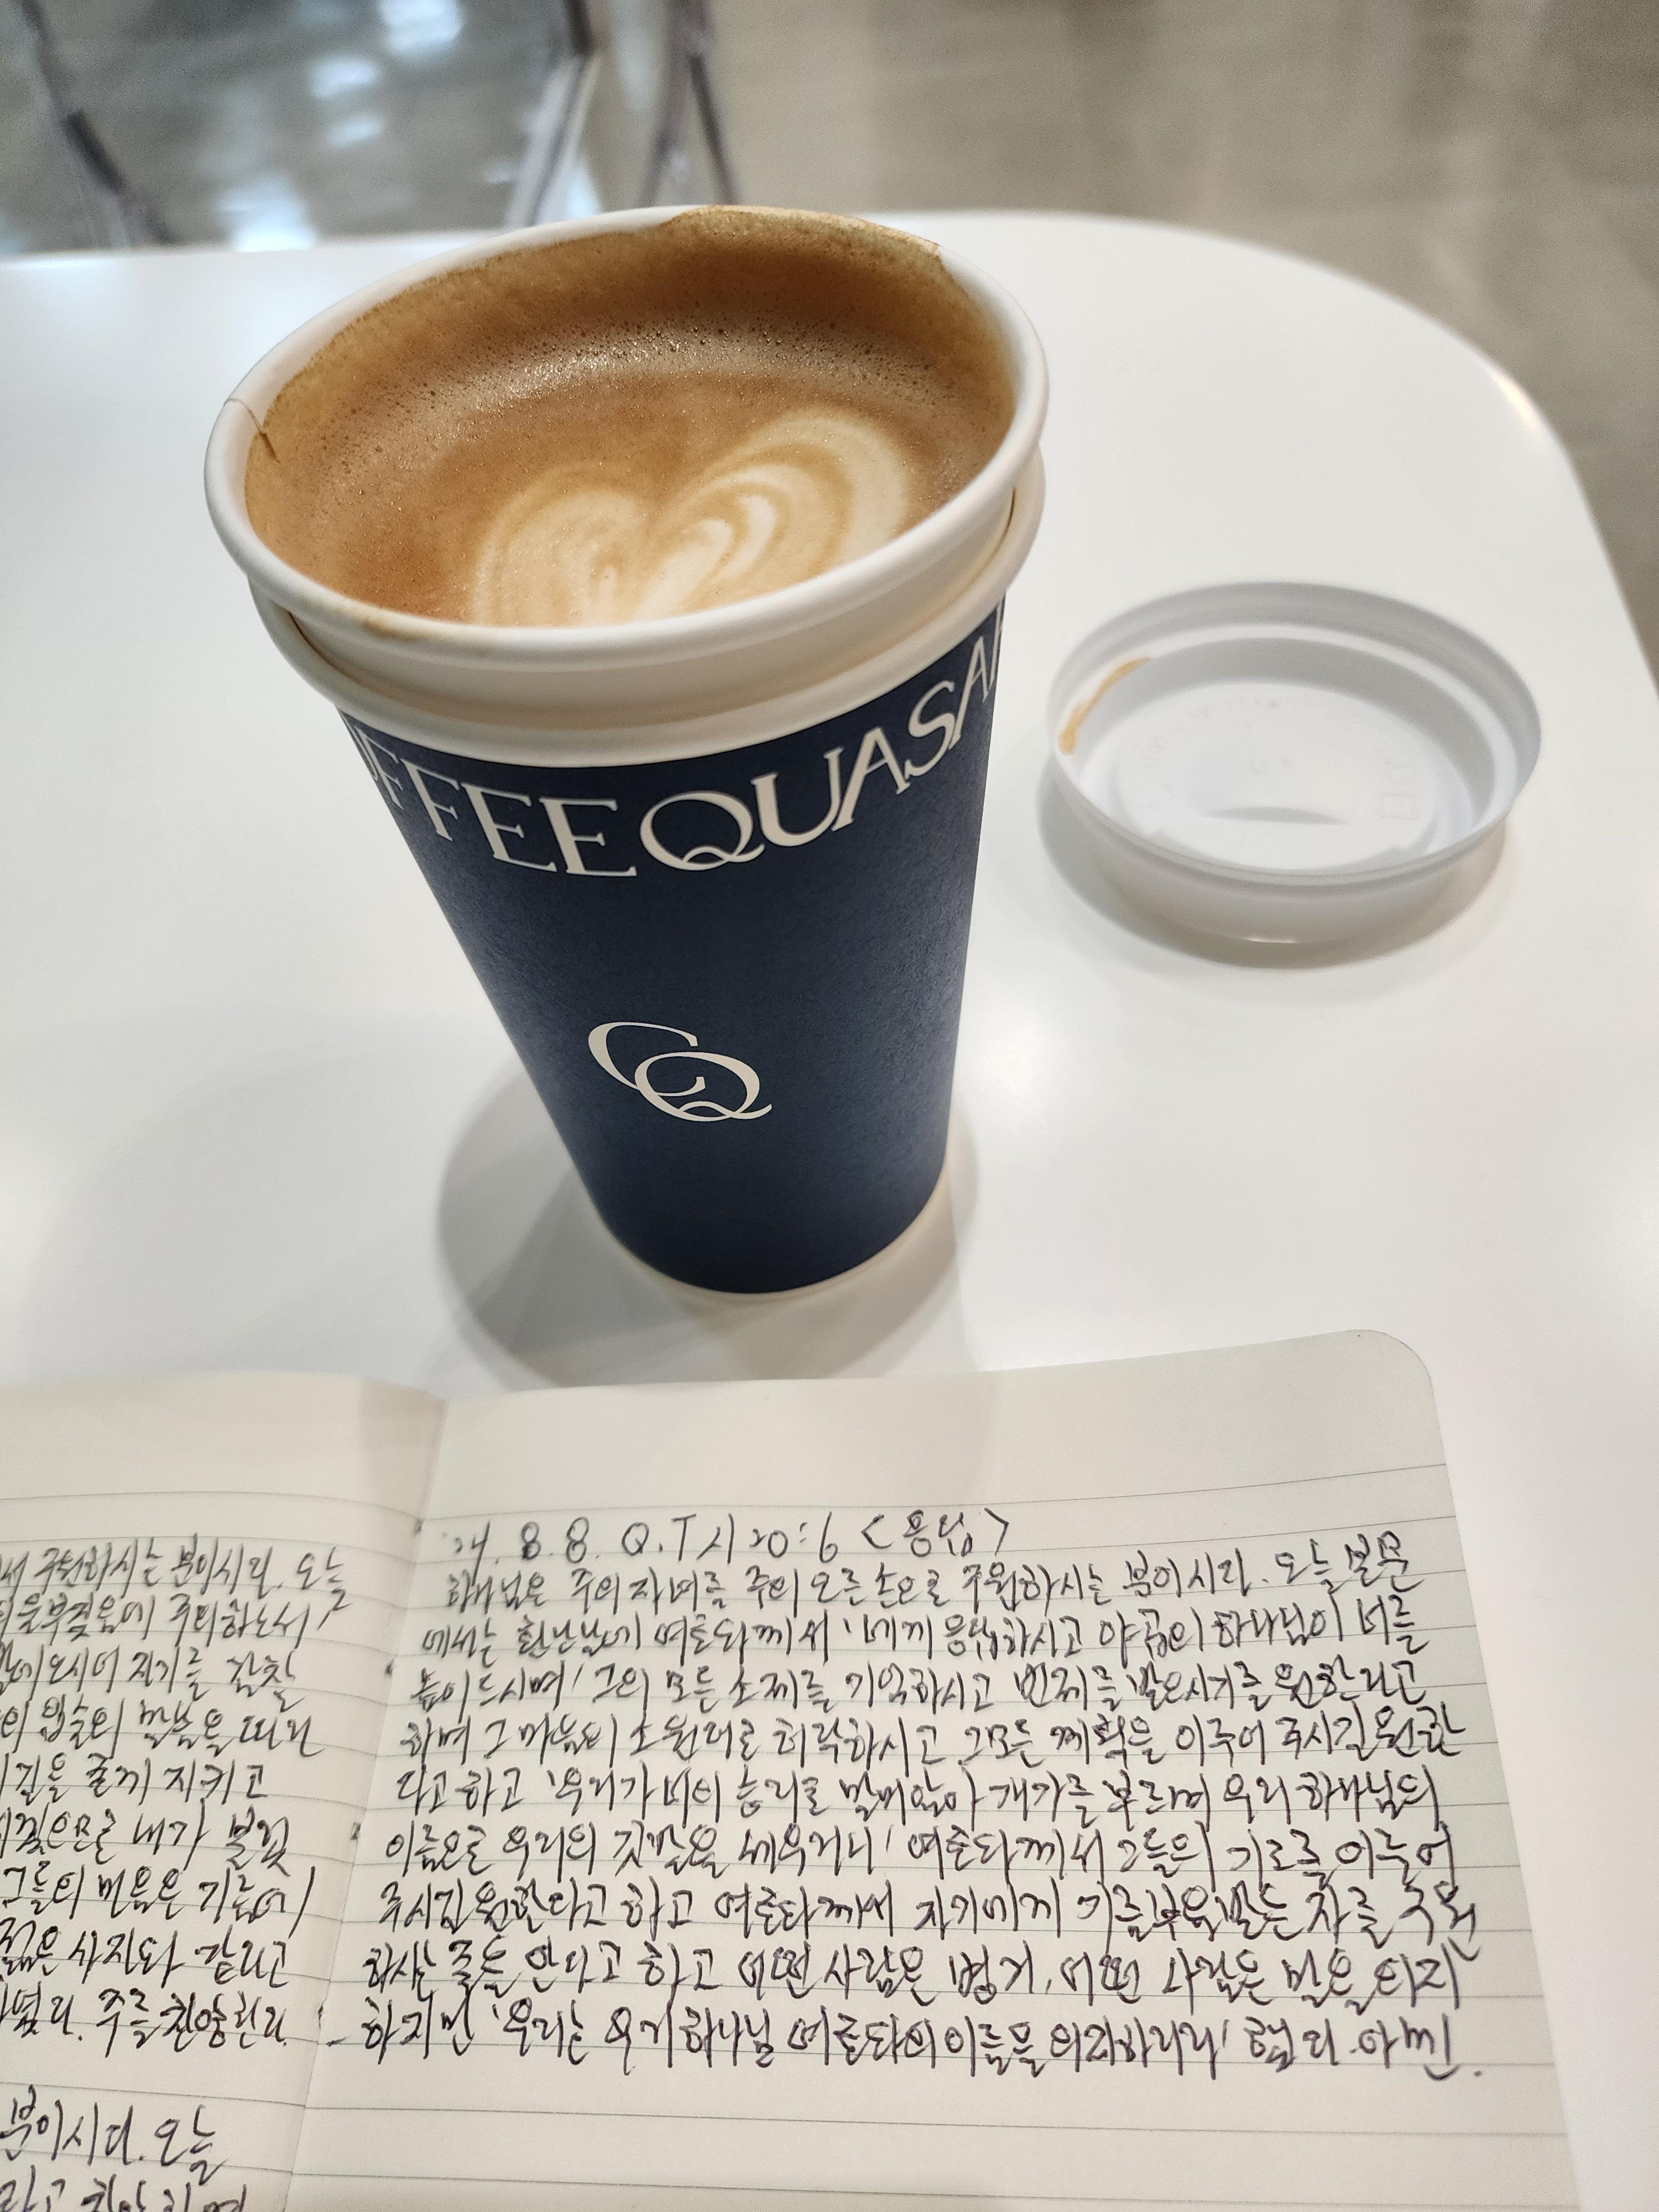 FFEE QUASA
CQ
'24. 8. 8. Q.T 시 20:6 <응답>
하나님은 주의 자녀를 주의 오른손으로 구원하시는 분이시다. 오늘 본문
에서는 환난날에 여호와께서 '네게 응답하시고 야곱의 하나님이 너를
높이 드시며' 그의 모든 소제를 기억하시고 번제를 받으시기를 원한다고
하며 그 마음의 소원대로 허락하시고 그 모든 계획을 이루어 주시길 원한
다고 하고 '우리가 너의 승리로 말미암아 개가를 부르며 우리 하나님의
이름으로 우리의 깃발을 세우리니' 여호와께서 그들의 기도를 이루어
주시길 원한다고 하고 여호와께서 자기에게 기름부음받는 자를 구원
하시는 줄을 안다고 하고 어떤 사람은 병거, 어떤 사람은 말을 의지
하지만 '우리는 우리 하나님 여호와의 이름을 의지하리라' 했다. 아멘.
구원하시는 분이시다. 오늘
주의하소서'
오시어 저기를
입술의 말씀을 따라
길을 굳게 지키고
내가
그들의 믿음은 기름에
젊은 사자와 같다고
주를 찬양한다.
분이시다. 오늘